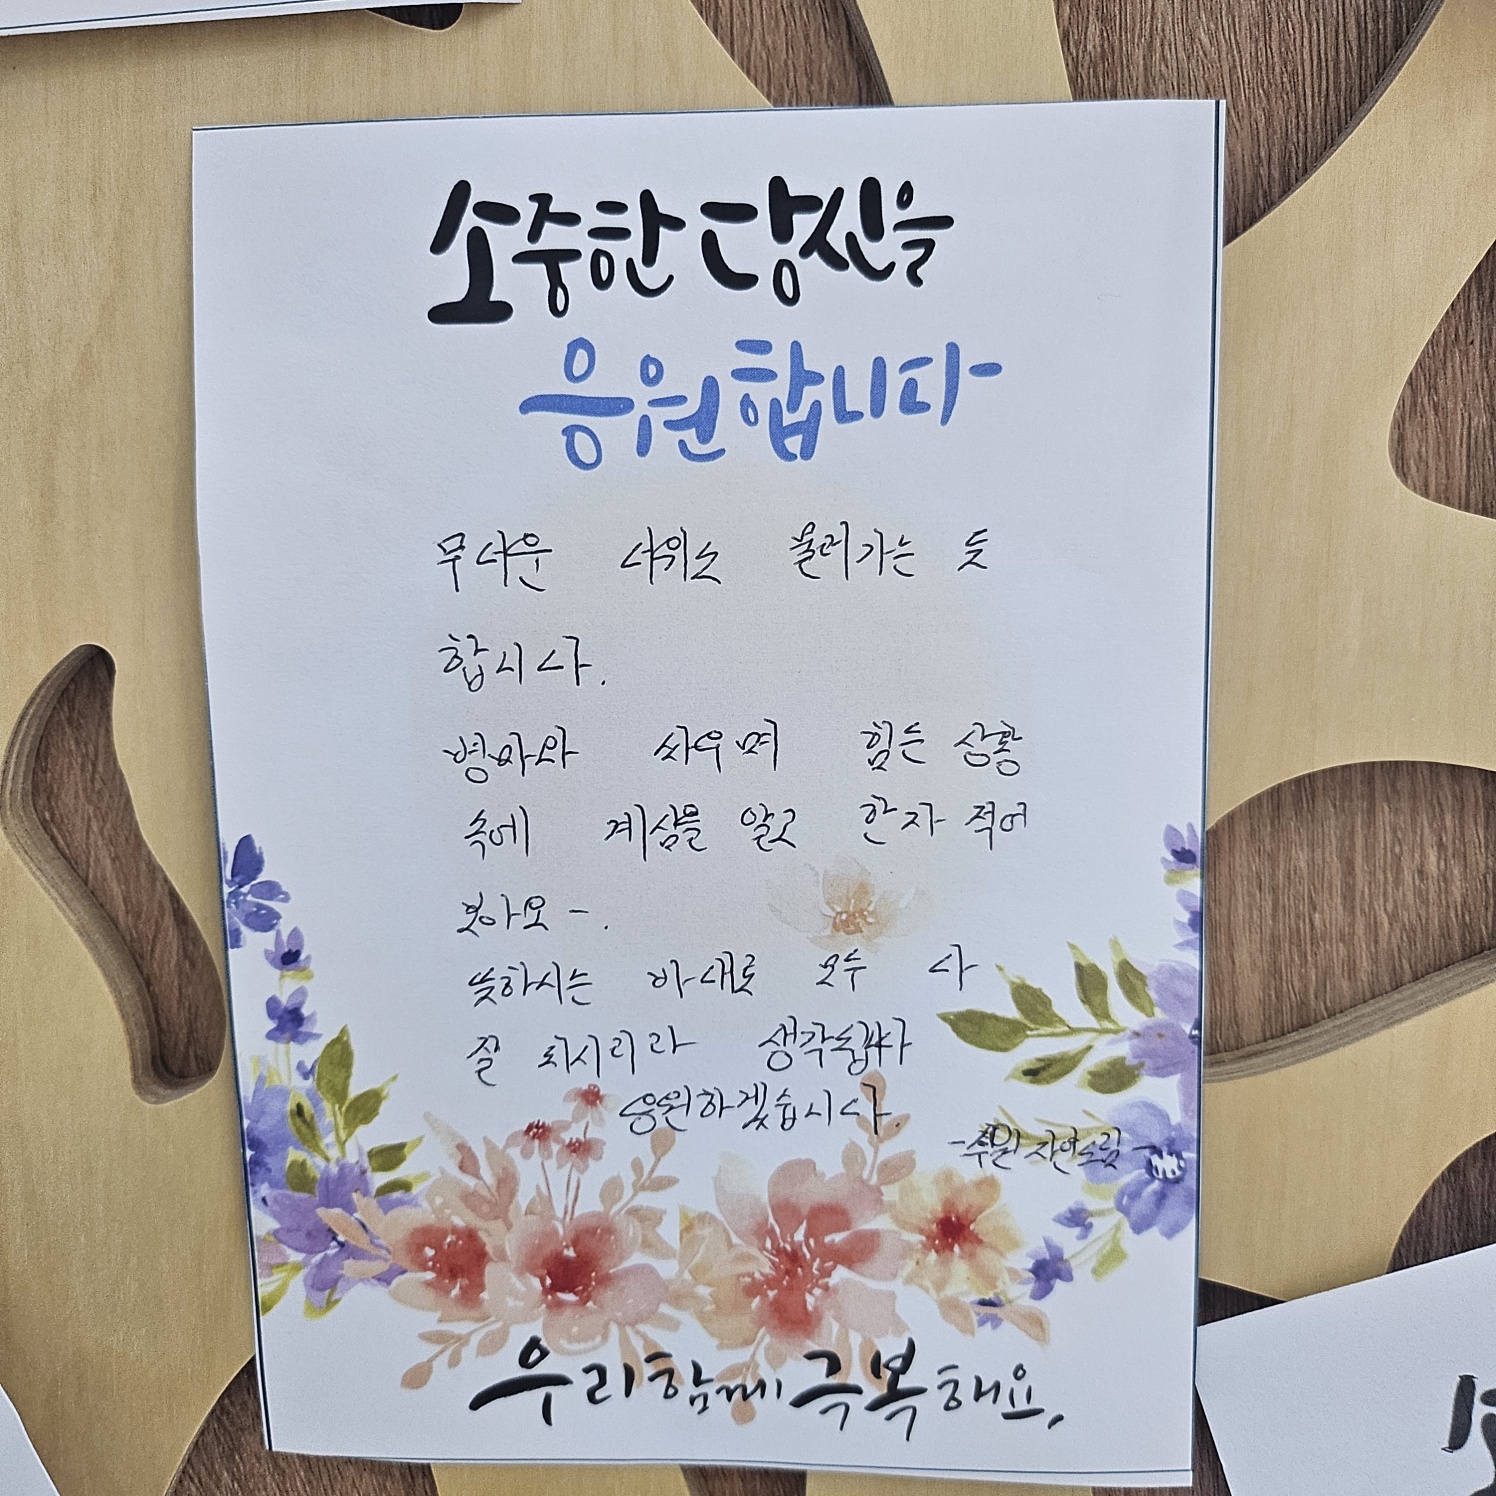 소중한 당신을
응원합니다
무더운 더위도 물러가는 듯
합니다.
병마와 싸우며 힘든 상황
속에 계심을 알고 한자 적어
보아요-.
뜻하시는 바대로 모두 다
잘 되시리라 생각됩니다
응원하겠습니다.
자연드림-
우리함께 극복해요,